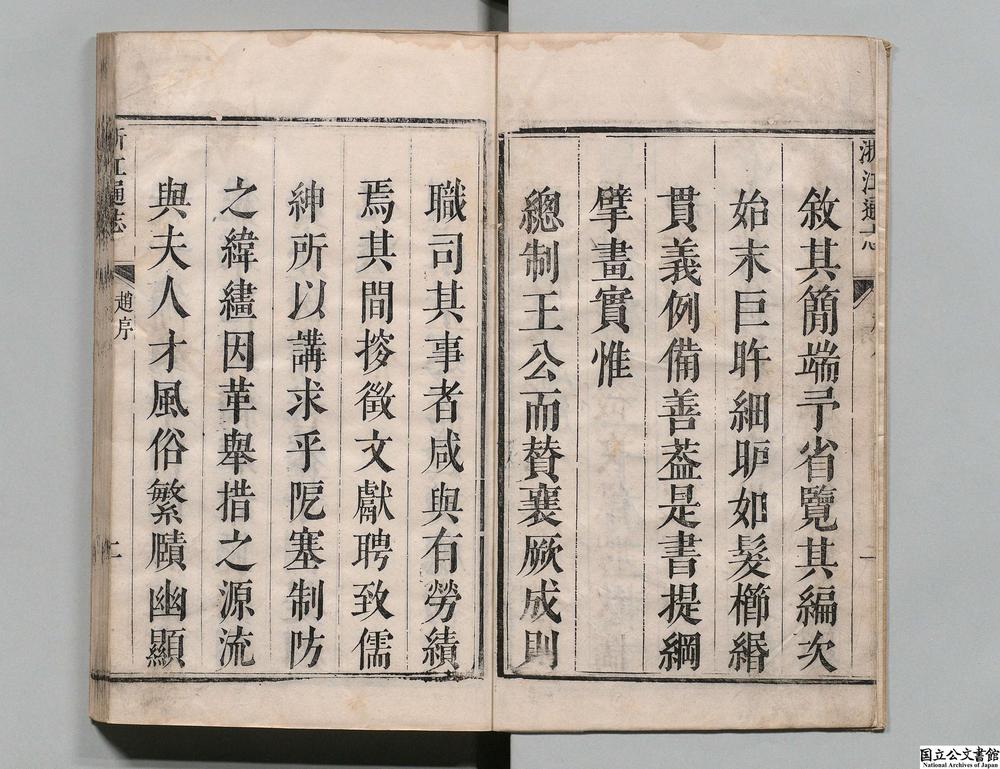 浙江通志
敘其簡端予省覽其編次
始末巨眎細眎如髮櫛緡
貫義例備善葢是書提綱
擘畫實惟
總制王公而贊襄厥成則
職司其事者咸與有勞績
焉其間搜徵文獻聘致儒
紳所以講求乎阨塞制防
之緯繣因革舉措之源流
與夫人才風俗繁賾幽顯
浙江通志
趙序
二
国立公文書館
National Archives of Japan